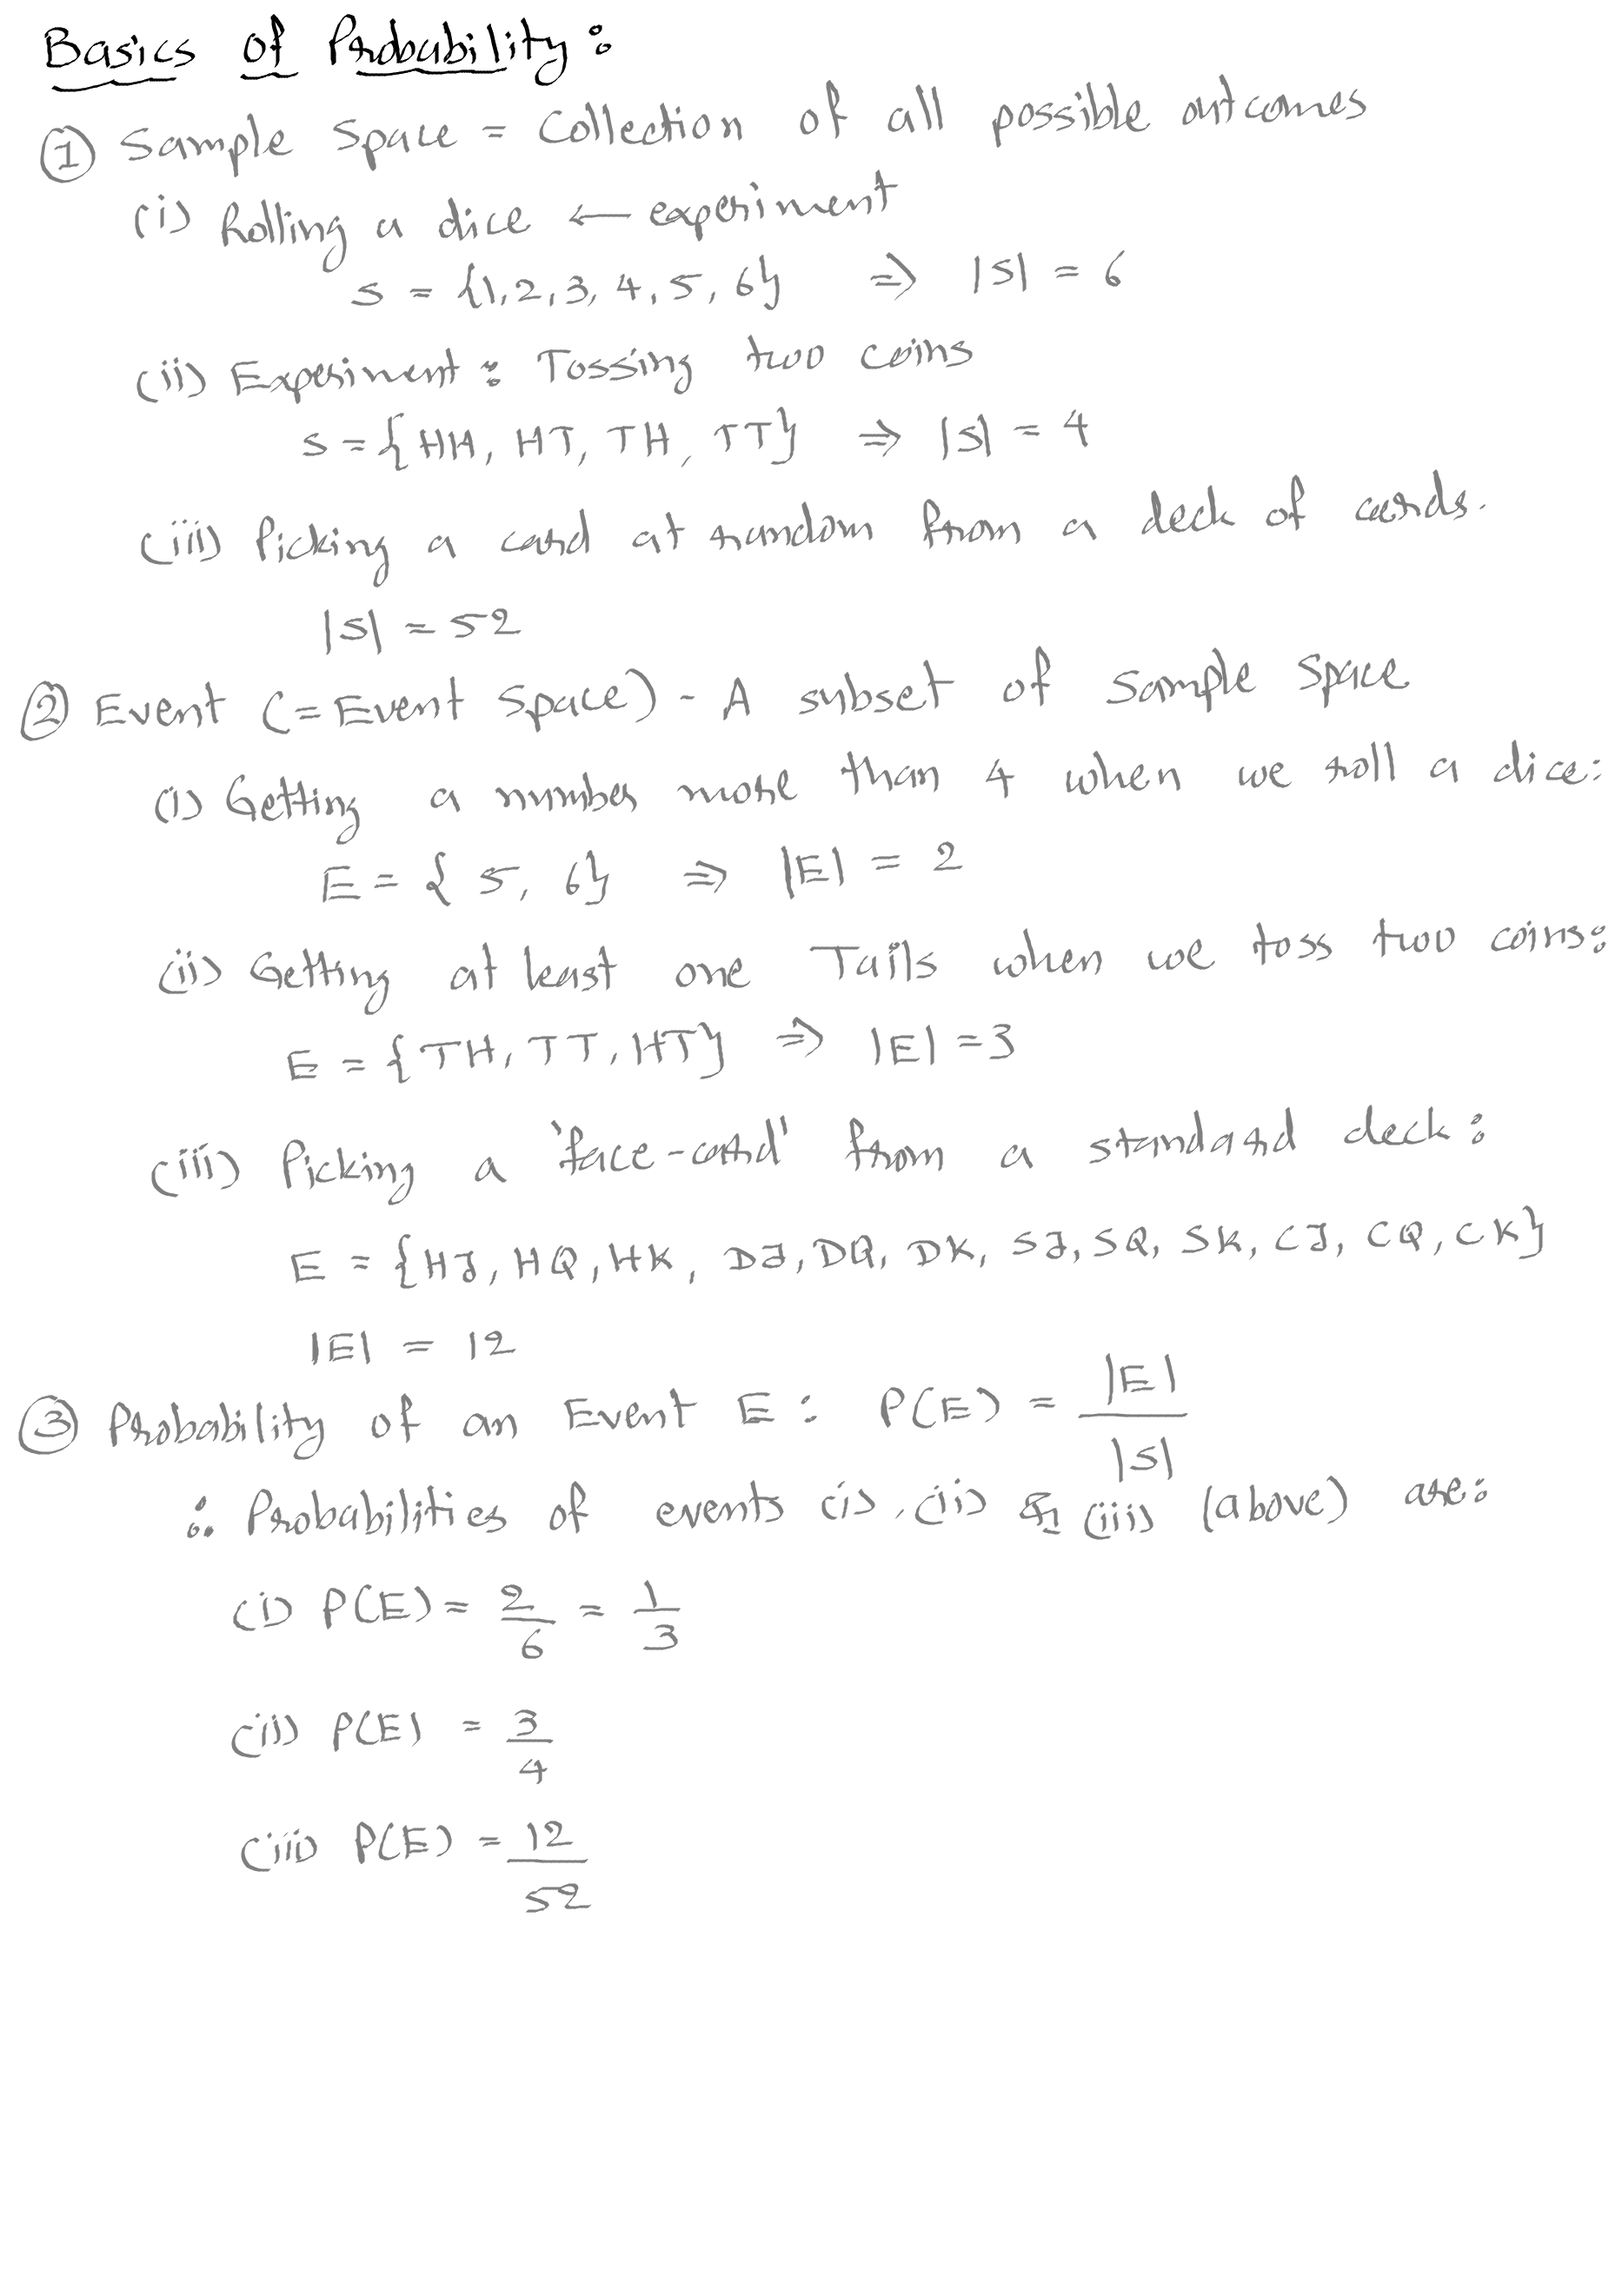 Basics of Probability:
① Sample Space = Collection of all possible outcomes
(i) Rolling a dice ← experiment
S = {1, 2, 3, 4, 5, 6} ⇒ |S| = 6
(ii) Experiment: Tossing two coins
S = {HH, HT, TH, TT} ⇒ |S| = 4
(iii) Picking a card at random from a deck of cards.
|S| = 52
② Event (= Event Space) - A subset of Sample Space
(i) Getting a number more than 4 when we roll a dice:
E = {5, 6} ⇒ |E| = 2
(ii) Getting at least one Tails when we toss two coins:
E = {TH, TT, HT} ⇒ |E| = 3
(iii) Picking a 'face-card' from a standard deck:
E = {HJ, HQ, HK, DJ, DQ, DK, SJ, SQ, SK, CJ, CQ, CK}
|E| = 12
③ Probability of an Event E: P(E) = |E| / |S|
∴ Probabilities of events (i), (ii) & (iii) (above) are:
(i) P(E) = 2/6 = 1/3
(ii) P(E) = 3/4
(iii) P(E) = 12/52